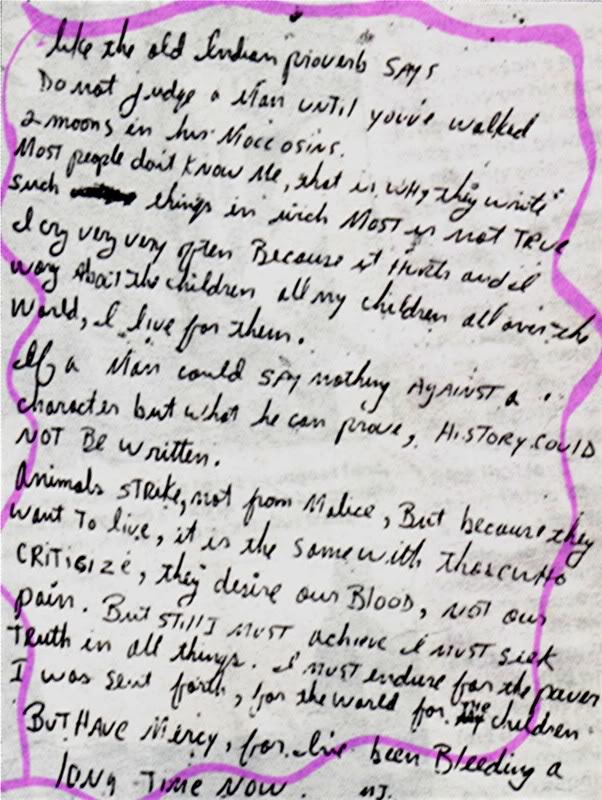 like the old Indian proverb SAYS
Do not judge a Man UNTIL you've walked
2 moons in his Moccosins.
Most people don't KNOW Me, that is WHY they write
such things in wich MOST is not TRUE
I cry very very often Because it Hurts and I
wory About the children all my children all over the
World, I live for them.
If a Man could SAY nothing AGAINST a
character but what he can prove, HISTORY COULD
NOT BE written.
Animals STRIKE, not from Malice, But because they
want To live, it is the same with those WHO
CRITISIZE, they desire our BLOOD, NOT our
pain. But STILL I MUST achieve I MUST seek
TRUTH in all things. I MUST endure for the power
I was sent forth, for the world for THE children.
BUT HAVE Mercy, for I've been Bleeding a
long TIME NOW. MJ.